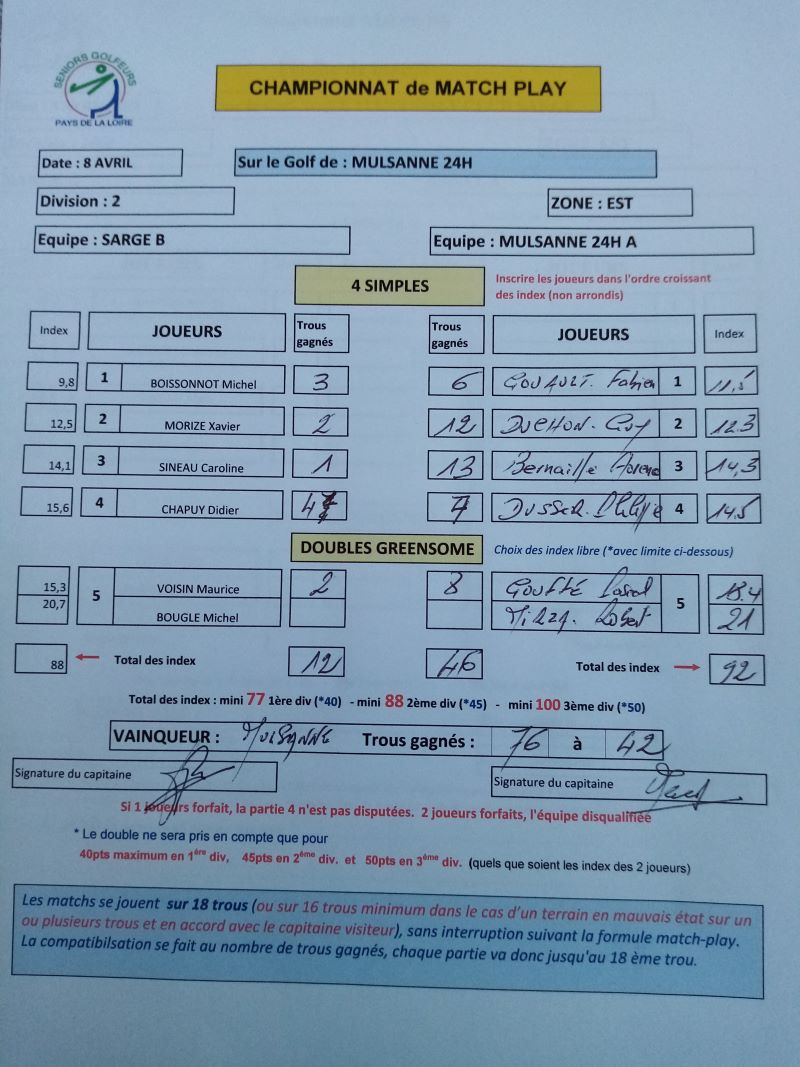 SENIORS GOLFEURS
PAYS DE LA LOIRE
CHAMPIONNAT de MATCH PLAY
Date : 8 AVRIL
Sur le Golf de : MULSANNE 24H
Division : 2
ZONE : EST
Equipe : SARGE B
Equipe : MULSANNE 24H A
4 SIMPLES
Inscrire les joueurs dans l'ordre croissant
des index (non arrondis)
Index JOUEURS Trous gagnés Trous gagnés JOUEURS Index
9,8 1 BOISSONNOT Michel 3 6 GOUAULT. Fabien 1
12,5 2 MORIZE Xavier 2 12 DUCHON. Guy 2 12.3
14,1 3 SINEAU Caroline 1 13 Bernaille 3 14,3
15,6 4 CHAPUY Didier 4 7 DUSSER. Philippe 4 14,5
DOUBLES GREENSOME
Choix des index libre (*avec limite ci-dessous)
15,3 5 VOISIN Maurice 2 8 5
20,7 BOUGLE Michel Robert 21
88 Total des index 12 46 Total des index 92
Total des index : mini 77 1ère div (*40) - mini 88 2ème div (*45) - mini 100 3ème div (*50)
VAINQUEUR : MULSANNE Trous gagnés : à
Signature du capitaine
Signature du capitaine
Si 1 joueurs forfait, la partie 4 n'est pas disputées. 2 joueurs forfaits, l'équipe disqualifiée
* Le double ne sera pris en compte que pour
40pts maximum en 1ère div, 45pts en 2ème div. et 50pts en 3ème div. (quels que soient les index des 2 joueurs)
Les matchs se jouent sur 18 trous (ou sur 16 trous minimum dans le cas d'un terrain en mauvais état sur un
ou plusieurs trous et en accord avec le capitaine visiteur), sans interruption suivant la formule match-play.
La compatibilsation se fait au nombre de trous gagnés, chaque partie va donc jusqu'au 18 ème trou.